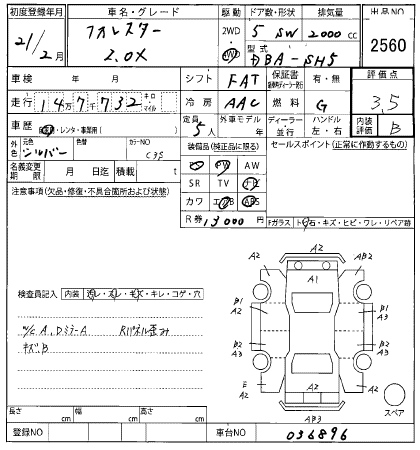 初度登録年月 車名・グレード 駆動 ドア数・形状 排気量 出品NO
21/2月 フォレスター 2WD 5 SW 2000 cc 2560
2.0X 4WD 型式 DBA-SH5
車検 年 月 シフト FAT 保証書 有・無 評価点
走行 14万7千732 キロ マイル 冷房 AAC 燃料 G 3.5
車歴 自家用・レンタ・事業用( ) 定員 5人 外車モデル 年 ディーラー 並行 ハンドル 左・右 内装評価 B
外色 元色 シルバー 色替 カラーNO C3S 装備品(純正品に限る) セールスポイント(正常に作動するもの)
名義変更期限 月 日迄 積載 t PS PW AW
注意事項(欠品・修復・不具合箇所および状態) SR TV ナビ
カワ エアB ABS
R券 13000 円 Fガラス トビ石・キズ・ヒビ・ワレ・リペア跡
検査員記入 内装 汚レ・スレ・キズ・キレ・コゲ・穴
W/C A,Dミラ-A Rパネル歪み
キズB
A2
A2 AB2
A1
B1 A2 B1 A3
B2 A3 B2 A3
E A2 A2
A2 A2
AB3
スペア
長さ cm 幅 cm 高さ cm
登録NO 車台NO 036896